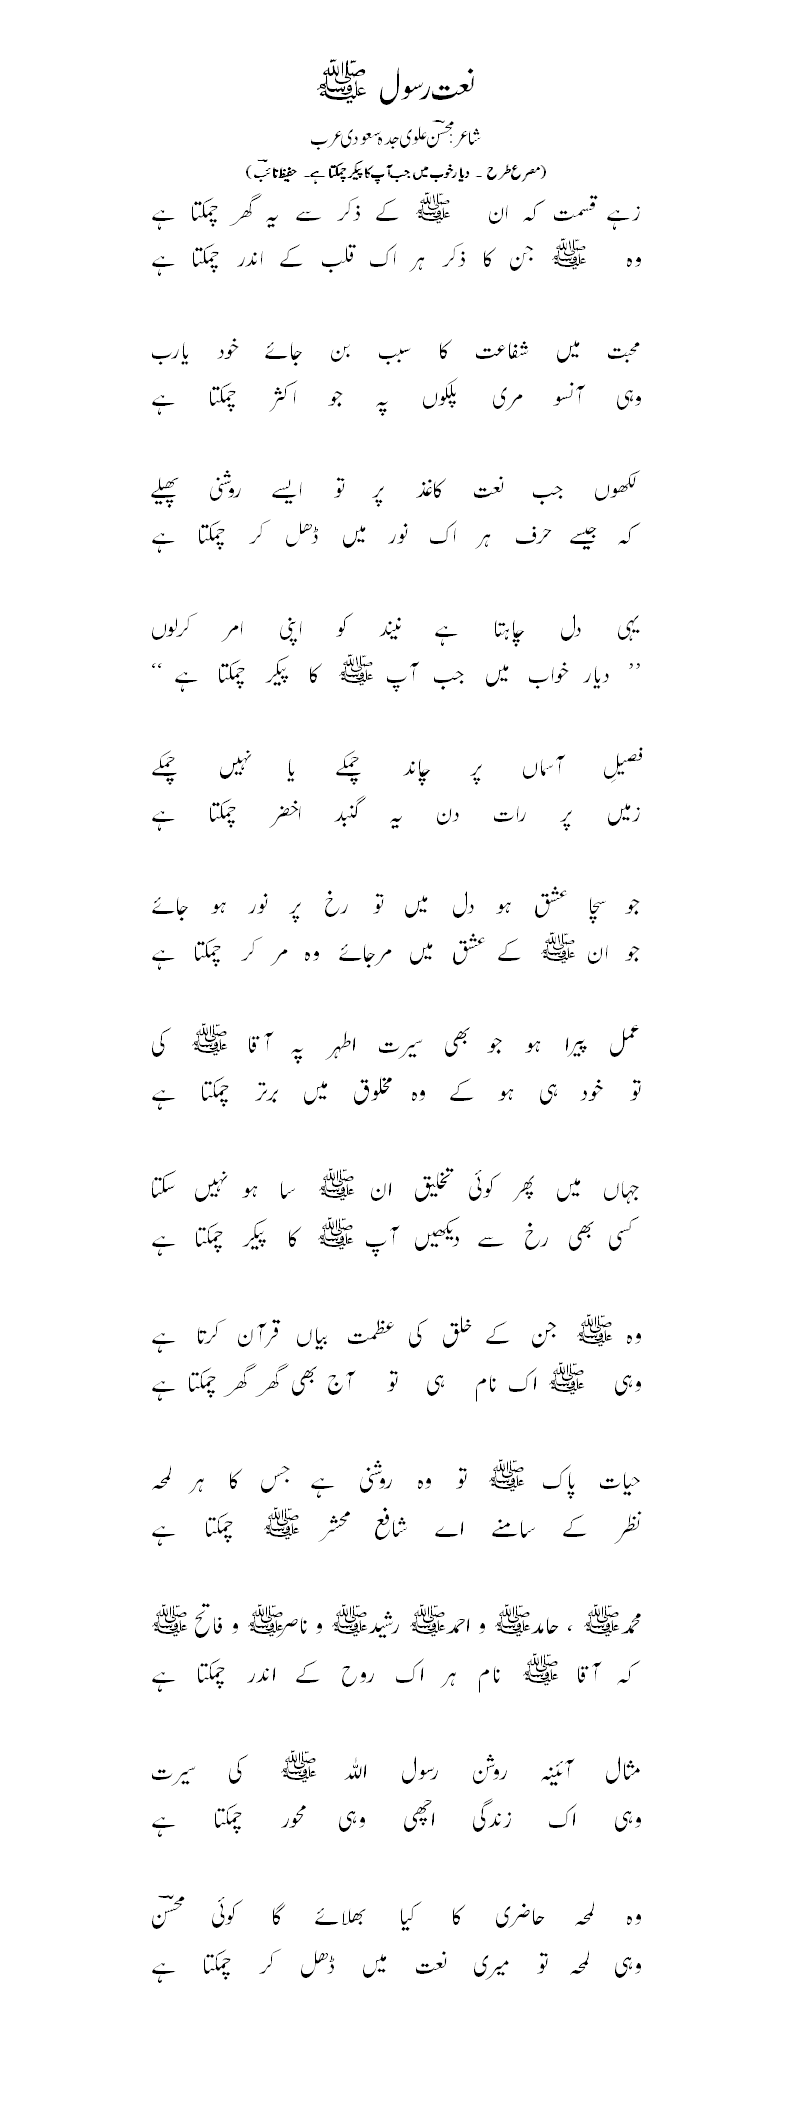 نعت رسول ﷺ
شاعر: محسنؔ علوی جدہ سعودی عرب
(مصرع طرح ۔ دیار خوب میں جب آپ کا پیکر چمکتا ہے۔ حفیظ تائبؔ)
زہے قسمت کہ ان ﷺ کے ذکر سے یہ گھر چمکتا ہے
وہ ﷺ جن کا ذکر ہر اک قلب کے اندر چمکتا ہے
محبت میں شفاعت کا سبب بن جائے خود یارب
وہی آنسو مری پلکوں پہ جو اکثر چمکتا ہے
لکھوں جب نعت کاغذ پر تو ایسے روشنی پھیلے
کہ جیسے حرف ہر اک نور میں ڈھل کر چمکتا ہے
یہی دل چاہتا ہے نیند کو اپنی امر کرلوں
’’ دیار خواب میں جب آپ ﷺ کا پیکر چمکتا ہے ‘‘
فصیلِ آسماں پر چاند چمکے یا نہیں چمکے
زمیں پر رات دن یہ گنبد اخضر چمکتا ہے
جو سچا عشق ہو دل میں تو رخ پر نور ہو جائے
جو ان ﷺ کے عشق میں مرجائے وہ مر کر چمکتا ہے
عمل پیرا ہو جو بھی سیرت اطہر پہ آقا ﷺ کی
تو خود ہی ہو کے وہ مخلوق میں برتر چمکتا ہے
جہاں میں پھر کوئی تخلیق ان ﷺ سا ہو نہیں سکتا
کسی بھی رخ سے دیکھیں آپ ﷺ کا پیکر چمکتا ہے
وہ ﷺ جن کے خلق کی عظمت بیاں قرآن کرتا ہے
وہی ﷺ اک نام ہی تو آج بھی گھر گھر چمکتا ہے
حیات پاک ﷺ تو وہ روشنی ہے جس کا ہر لمحہ
نظر کے سامنے اے شافع محشر ﷺ چمکتا ہے
محمد ﷺ ، حامد ﷺ و احمد ﷺ رشید ﷺ و ناصر ﷺ و فاتح ﷺ
کہ آقا ﷺ نام ہر اک روح کے اندر چمکتا ہے
مثال آئینہ روشن رسول اللہ ﷺ کی سیرت
وہی اک زندگی اچھی وہی محور چمکتا ہے
وہ لمحہ حاضری کا کیا بھلائے گا کوئی محسنؔ
وہی لمحہ تو میری نعت میں ڈھل کر چمکتا ہے